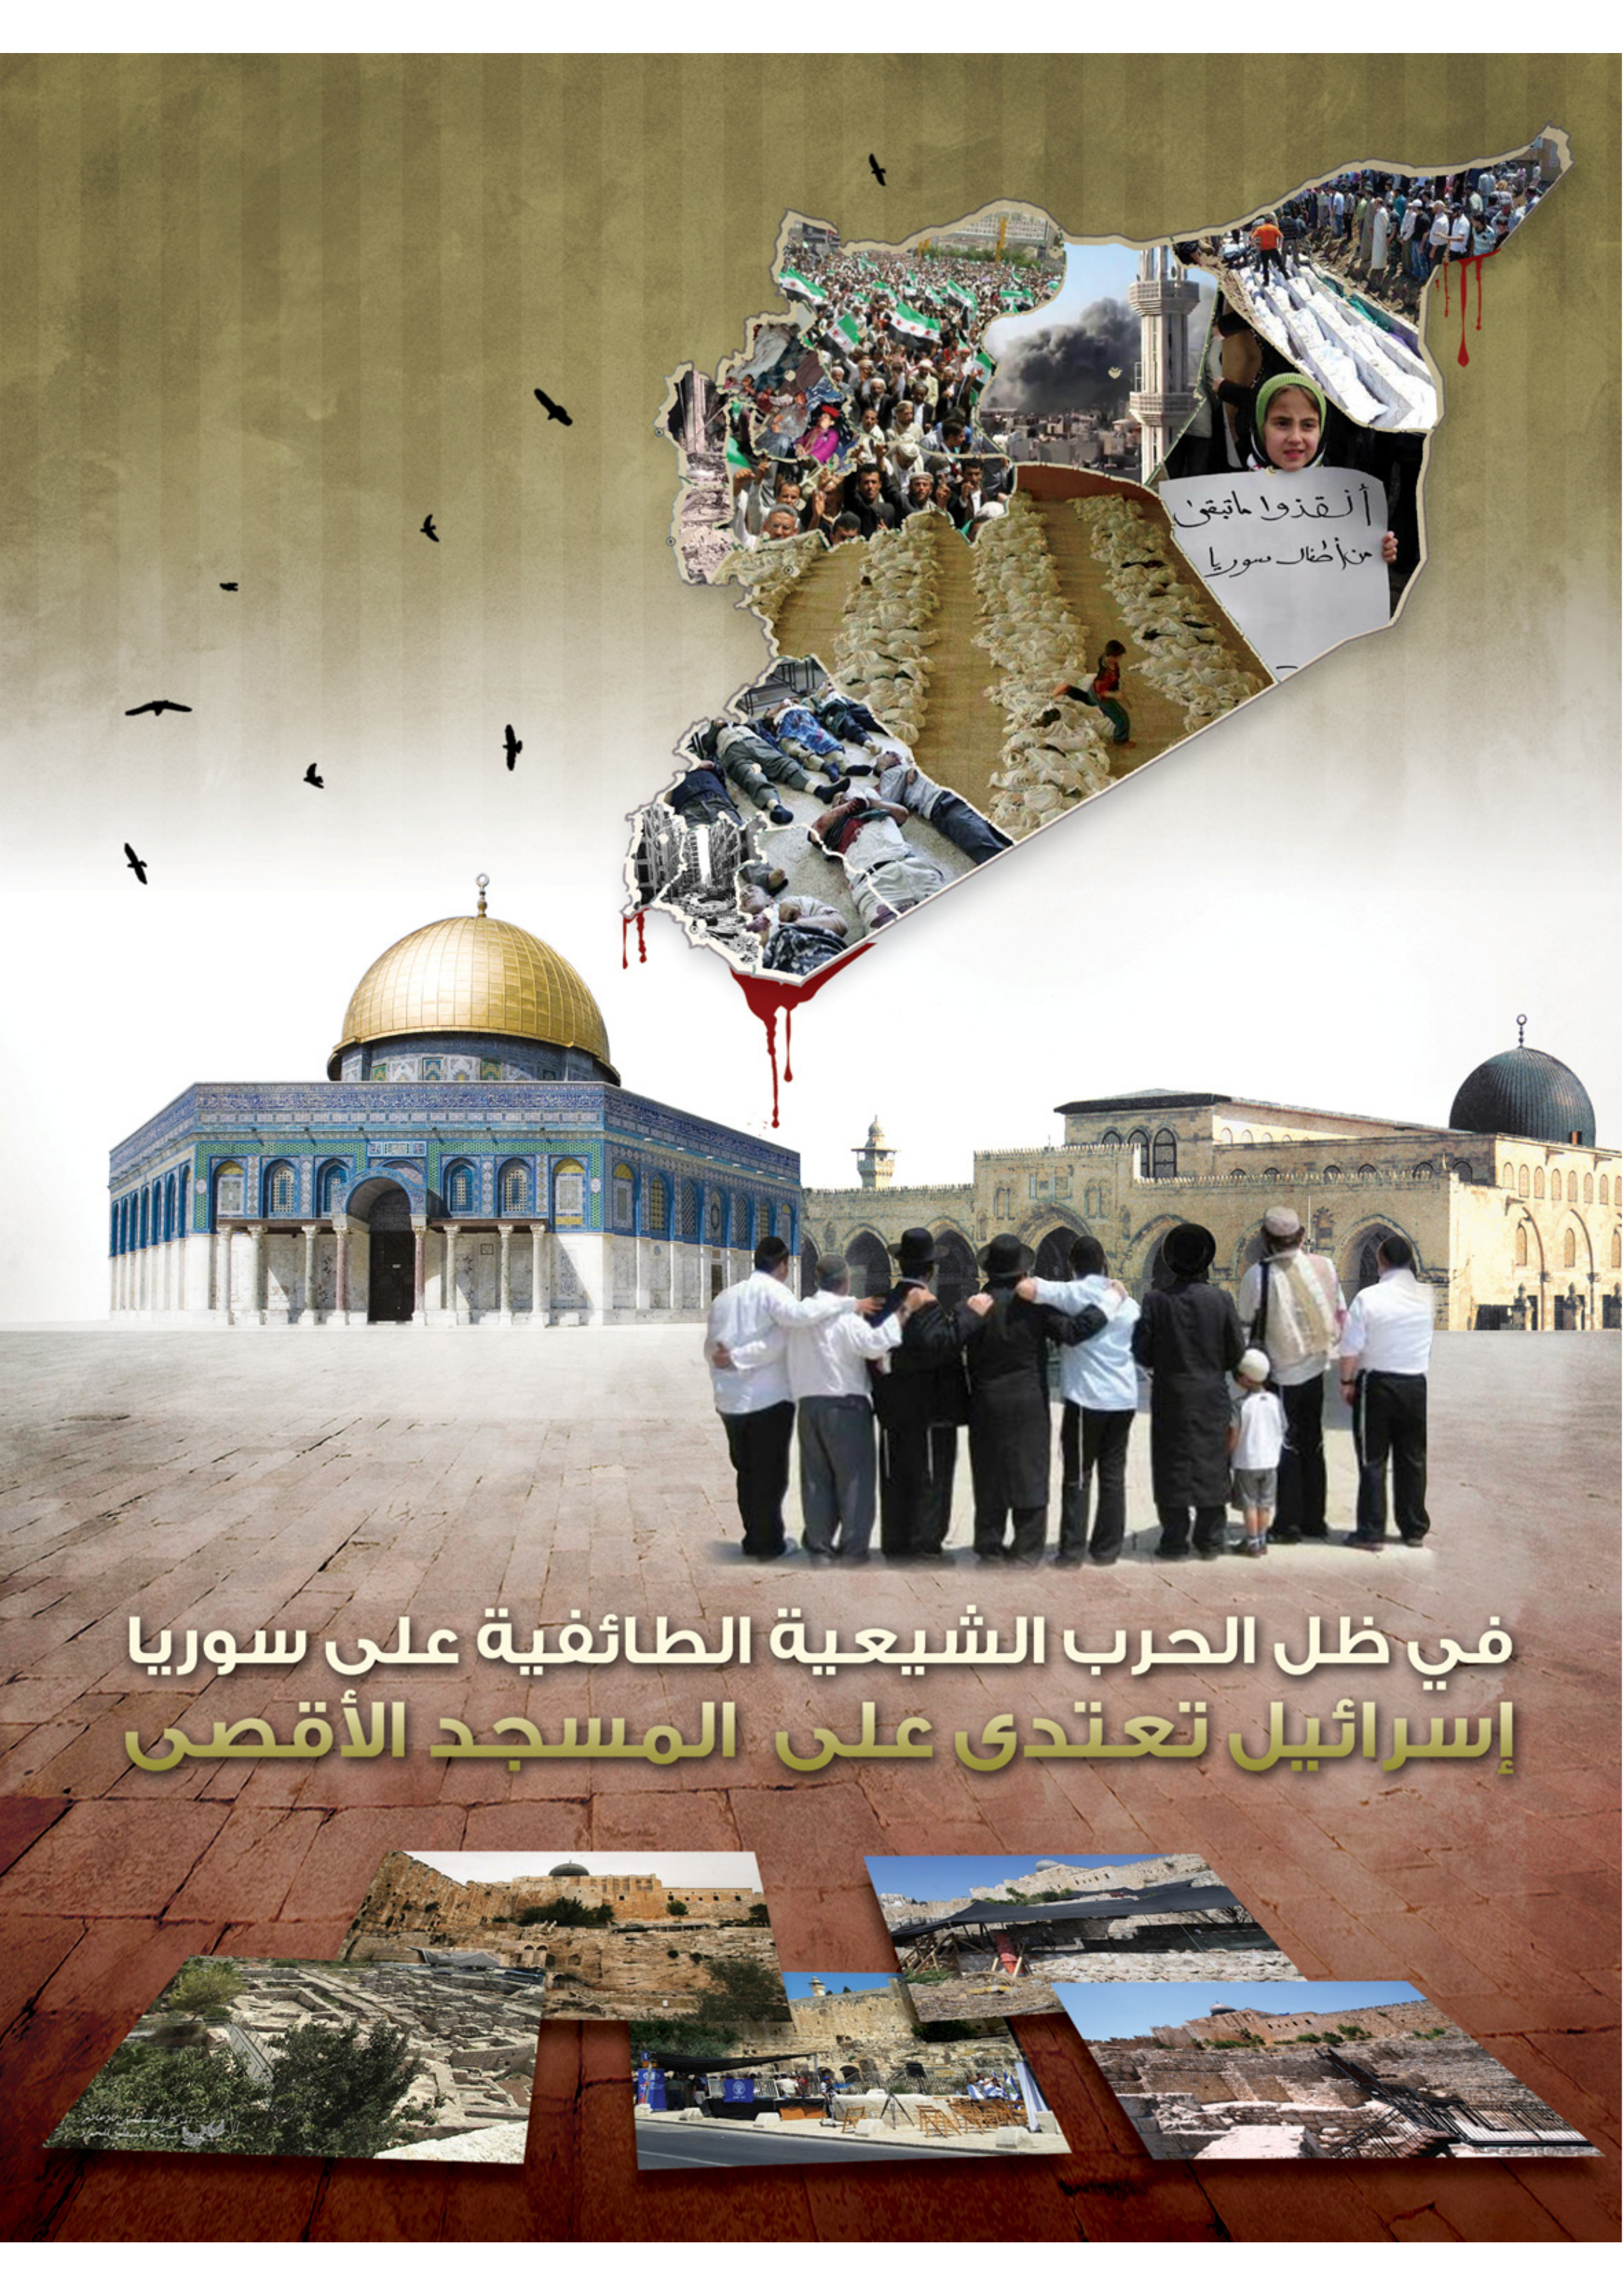 أنقذوا ماتبقى
من أطفال سوريا
في ظل الحرب الشيعية الطائفية على سوريا
إسرائيل تعتدى على المسجد الأقصى